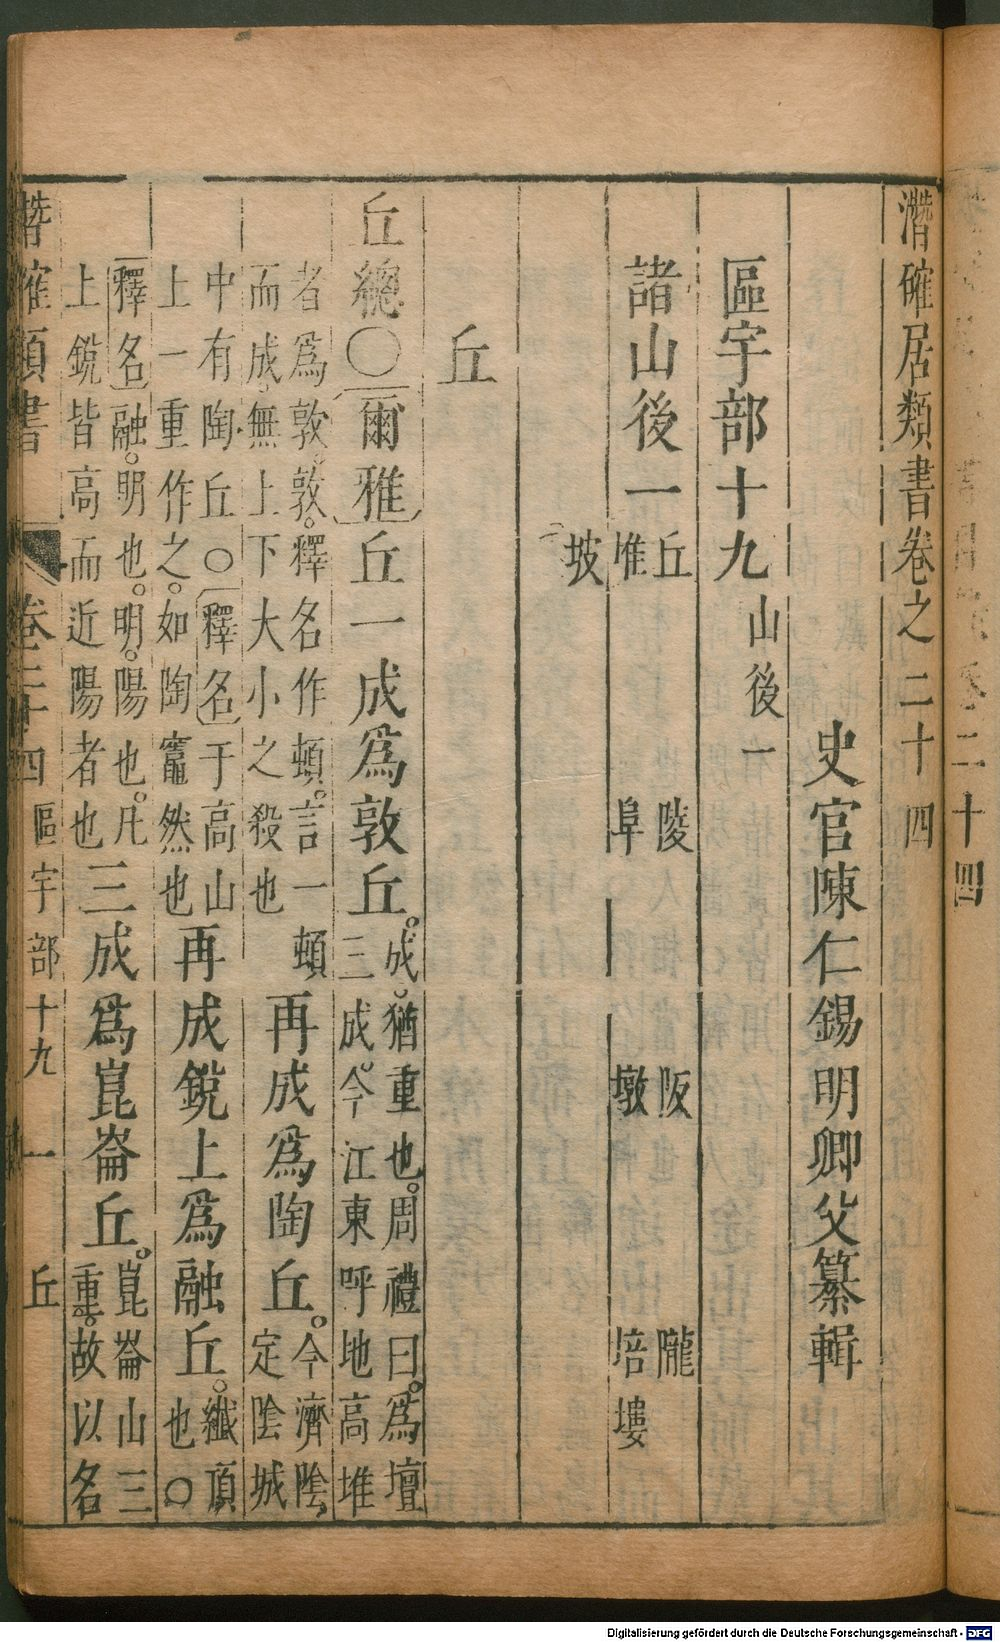 潛確居類書卷之二十四
史官陳仁錫明卿父纂輯
區宇部十九 山後一
諸山後一 丘 陵 阪 隴
堆 阜 墩 培塿
坡
丘
丘總〇爾雅丘一成為敦丘。成。猶重也。周禮曰。為壇
三成。今江東呼地高堆
者為敦。敦。釋名作頓。言一頓
而成。無上下大小之殺也
再成為陶丘。今濟陰
定陰城
中有陶丘〇釋名于高山
上一重作之。如陶竈然也
再成銳上為融丘。纖頂
也〇
釋名融。明也。明。陽也。凡
上銳皆高而近陽者也
三成為崑崙丘。崑崙山三
重。故以名
潛確類書 卷二十四 區宇部十九 一 丘
卷二十四
Digitalisierung gefördert durch die Deutsche Forschungsgemeinschaft - DFG